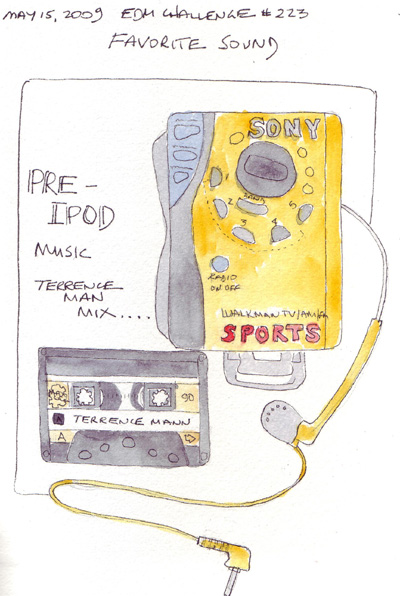 MAY 15, 2009 EDM CHALLENGE #223
FAVORITE SOUND
PRE-
IPOD
MUSIC
TERRENCE
MAN
MIX....
SONY
1
2
BAND
5
3
4
RADIO
ON OFF
WALKMAN TV/AM/FM
SPORTS
90
A TERRENCE MANN
A